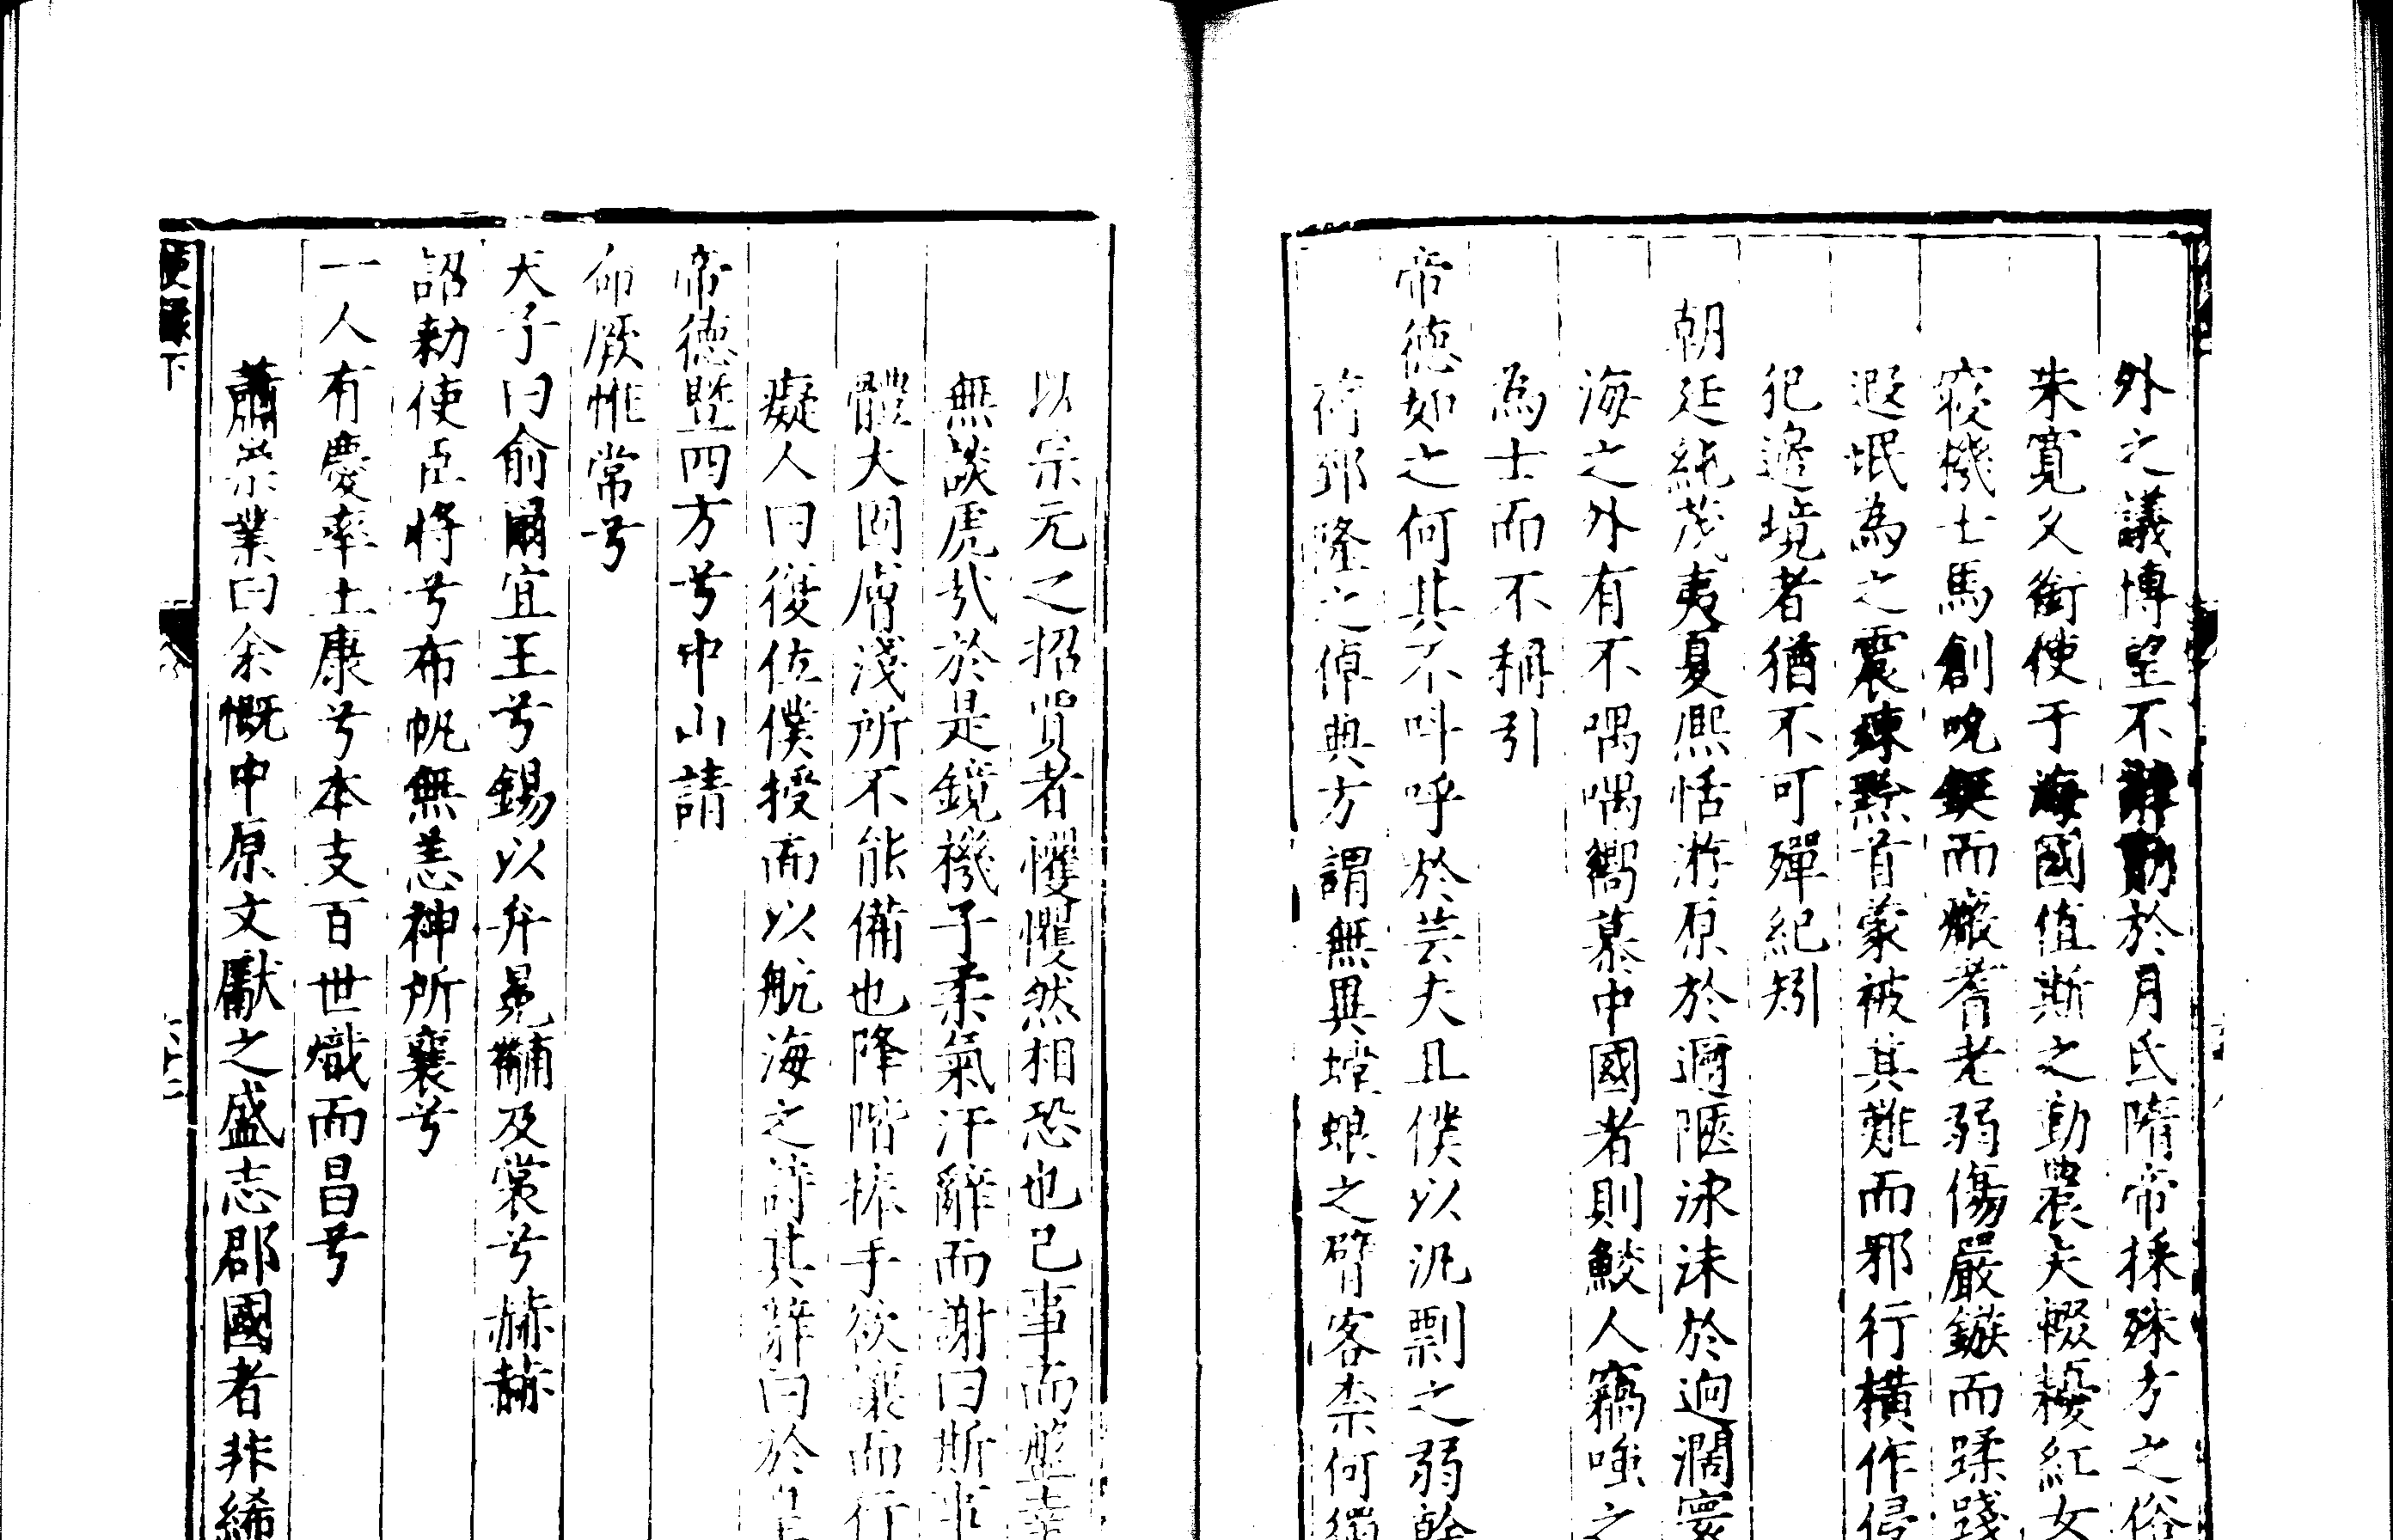 外之議博望不辭勤於月氏隋帝採殊方之俗
朱寬久銜使于海國值斯之勤農夫輟耰紅女
機士馬創吮鋋而瘢耆老弱傷嚴鏃而蹂踐
遐氓為之震煉黔首蒙被其難而邪行橫作侵
犯邊境者猶不可殫紀矧
朝廷純茂夷夏熈恬游原於邇陿泳沫於逈濶寰
海之外有不喁喁嚮慕中國者則鮫人竊嗤之
為士而不稱引
帝德如之何其不呌呼於芸夫且僕以汎剽之弱幹
荷郅隆之倬典方謂無異螳蜋之臂客柰何
以宗元之招賢者戄戄然相恐也已事而盤
無談虎㦲於是鏡機子柔氣汗辭而謝曰斯事
體大固膚淺所不能備也降階捧手欲讓而行
癡人曰復位僕授而以航海之詩其辭曰於皇
帝德曁四方兮中山請
命厥惟常兮
天子曰俞爾宜王兮錫以弁冕黼及裳兮赫赫
詔勑使臣將兮布帆無恙神所襄兮
一人有慶率土康兮本支百世熾而昌兮
蕭崇業曰余慨中原文獻之盛志郡國者非絺
使録下